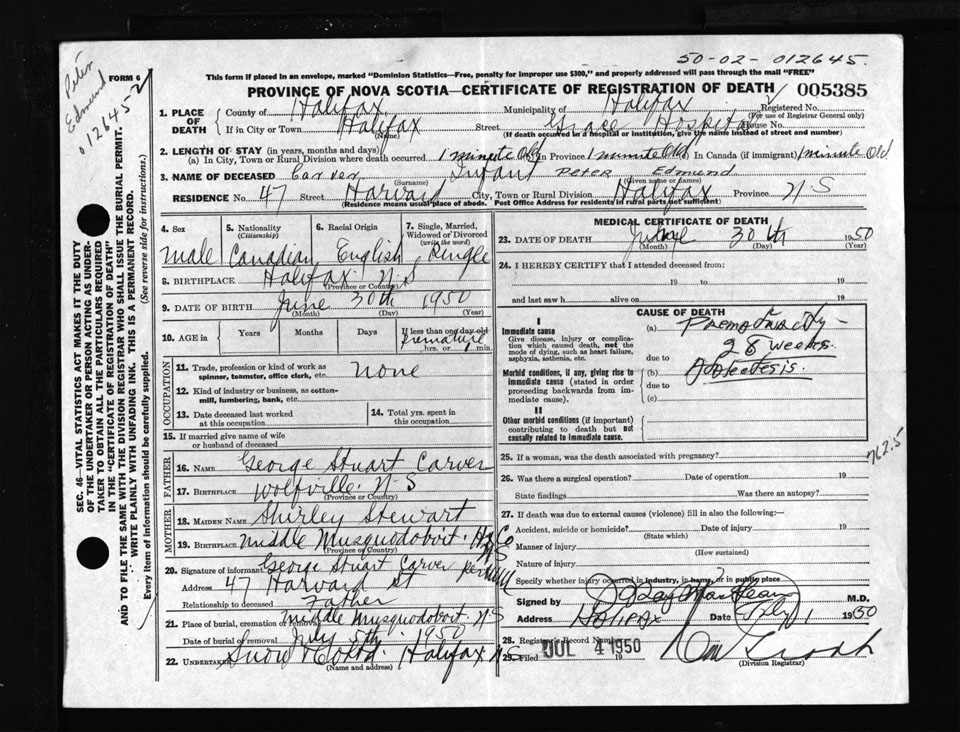 50-02-012645.
Peter
Edmund
012645-2
FORM 6
This form if placed in an envelope, marked "Dominion Statistics—Free, penalty for improper use $300," and properly addressed will pass through the mail "FREE"
PROVINCE OF NOVA SCOTIA—CERTIFICATE OF REGISTRATION OF DEATH 005385
1. PLACE OF DEATH County of Halifax Municipality of Halifax Registered No.
(For use of Registrar General only)
If in City or Town Halifax Street Grace Hospital House No.
(Name) (If death occurred in a hospital or institution, give the name instead of street and number)
2. LENGTH OF STAY (in years, months and days)
(a) In City, Town or Rural Division where death occurred 1 minute Old In Province 1 minute Old In Canada (if immigrant) 1 minute Old
3. NAME OF DECEASED Carver Infant Peter Edmund
(Surname) (Given name or names)
RESIDENCE No. 47 Street Harvard City, Town or Rural Division Halifax Province N S
(Residence means usual place of abode. Post Office Address for residents in rural parts not sufficient)
4. Sex 5. Nationality (Citizenship) 6. Racial Origin 7. Single, Married, Widowed or Divorced (write the word)
male Canadian English Single
8. BIRTHPLACE Halifax N.S
(Province or Country)
9. DATE OF BIRTH June 30th 1950
(Month) (Day) (Year)
10. AGE in Years Months Days If less than one day old
Premature
hrs. or min.
OCCUPATION
11. Trade, profession or kind of work as spinner, teamster, office clerk, etc. none
12. Kind of industry or business, as cotton-mill, lumbering, bank, etc.
13. Date deceased last worked at this occupation 14. Total yrs. spent in this occupation
15. If married give name of wife or husband of deceased
FATHER
16. NAME George Stuart Carver
17. BIRTHPLACE Wolfville N S
(Province or Country)
MOTHER
18. MAIDEN NAME Shirley Stewart
19. BIRTHPLACE Middle Musquodoboit. Hx Co N.S
(Province or Country)
20. Signature of informant George Stuart Carver
Address 47 Harvard St
Relationship to deceased Father
21. Place of burial, cremation or removal Middle Musquodoboit. N S
Date of burial or removal July 5th 1950
22. UNDERTAKER Snow & Co Ltd. Halifax N.S.
(Name and address)
MEDICAL CERTIFICATE OF DEATH
23. DATE OF DEATH June 30th 1950
(Month) (Day) (Year)
24. I HEREBY CERTIFY that I attended deceased from:
19 to 19
and last saw h alive on 19
CAUSE OF DEATH
I
Immediate cause
Give disease, injury or complication which caused death, not the mode of dying, such as heart failure, asphyxia, asthenia, etc.
(a) Prematurity - 28 weeks.
due to
Morbid conditions, if any, giving rise to immediate cause (stated in order proceeding backwards from immediate cause).
(b) Atelectesis.
due to
(c)
II
Other morbid conditions (if important) contributing to death but not causally related to immediate cause.
762.5
25. If a woman, was the death associated with pregnancy?
26. Was there a surgical operation? Date of operation 19
State findings Was there an autopsy?
27. If death was due to external causes (violence) fill in also the following:—
Accident, suicide or homicide? Date of injury 19
(State which)
Manner of injury
(How sustained)
Nature of injury
Specify whether injury occurred in industry, in home, or in public place
Signed by M.D.
Address Halifax Date July 1 1950
28. Registrar's Record Number
29. Filed JUL 4 1950 19
(Division Registrar)
SEC. 46—VITAL STATISTICS ACT MAKES IT THE DUTY
OF THE UNDERTAKER OR PERSON ACTING AS UNDER-
TAKER TO OBTAIN ALL THE PARTICULARS REQUIRED
IN THE "CERTIFICATE OF REGISTRATION OF DEATH"
AND TO FILE THE SAME WITH THE DIVISION REGISTRAR WHO SHALL ISSUE THE BURIAL PERMIT.
WRITE PLAINLY WITH UNFADING INK. THIS IS A PERMANENT RECORD.
Every item of information should be carefully supplied. (See reverse side for instructions.)